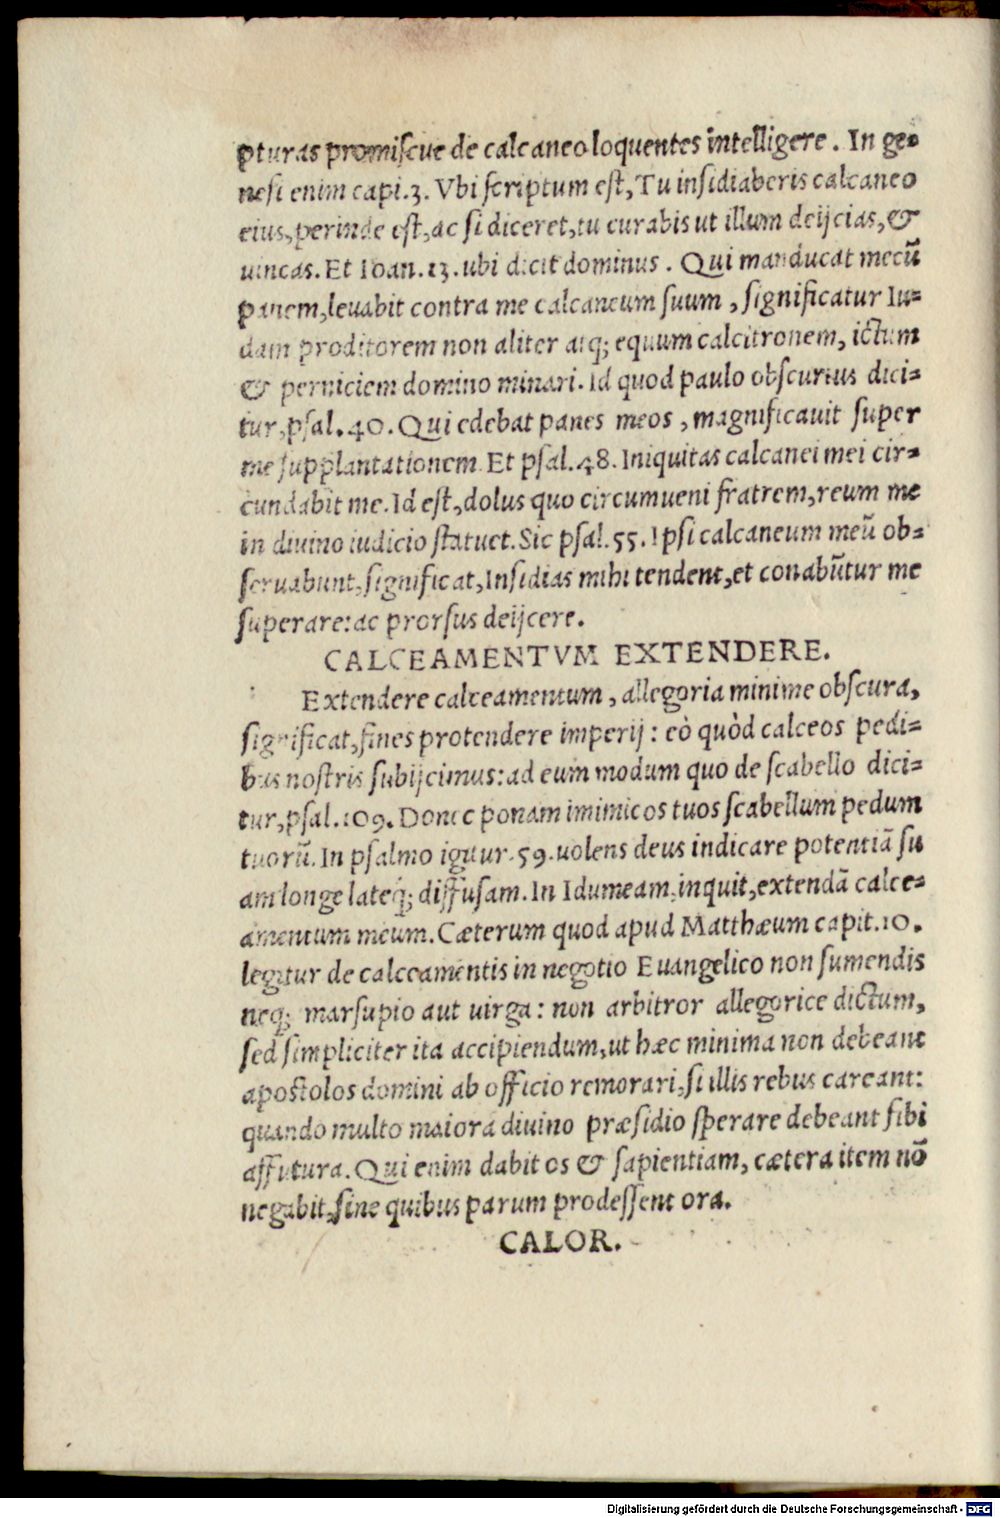 pturas promiscue de calcaneo loquentes intelligere. In ge-
nesi enim capi.3. Vbi scriptum est, Tu insidiaberis calcaneo
eius, perinde est, ac si diceret, tu curabis ut illum deijcias, &
uincas. Et Ioan. 13. ubi dicit dominus. Qui manducat mecū
panem, leuabit contra me calcaneum suum, significatur Iu-
dam proditorem non aliter atq; equum calcitronem, ictum
& perniciem domino minari. Id quod paulo obscurius dici-
tur, psal. 40. Qui edebat panes meos, magnificauit super
me supplantationem. Et psal. 48. Iniquitas calcanei mei cir-
cundabit me. Id est, dolus quo circumueni fratrem, reum me
in diuino iudicio statuet. Sic psal. 55. Ipsi calcaneum meū ob-
seruabunt, significat, Insidias mihi tendent, et conabūtur me
superare: ac prorsus deijcere.
CALCEAMENTVM EXTENDERE.
Extendere calceamentum, allegoria minime obscura,
significat, fines protendere imperij: eò quòd calceos pedi-
bus nostris subijcimus: ad eum modum quo de scabello dici-
tur, psal. 109. Donec ponam imimicos tuos scabellum pedum
tuorū. In psalmo igitur. 59. uolens deus indicare potentiā su
am longe lateq́; diffusam. In Idumeam, inquit, extendā calce-
amentum meum. Cæterum quod apud Matthæum capit. 10.
legitur de calceamentis in negotio Euangelico non sumendis
neq; marsupio aut uirga: non arbitror allegorice dictum,
sed simpliciter ita accipiendum, ut hæc minima non debeant
apostolos domini ab officio remorari, si illis rebus careant:
quando multo maiora diuino præsidio sperare debeant sibi
affutura. Qui enim dabit os & sapientiam, cætera item nō
negabit, sine quibus parum prodessent ora.
CALOR.
Digitalisierung gefördert durch die Deutsche Forschungsgemeinschaft - DFG